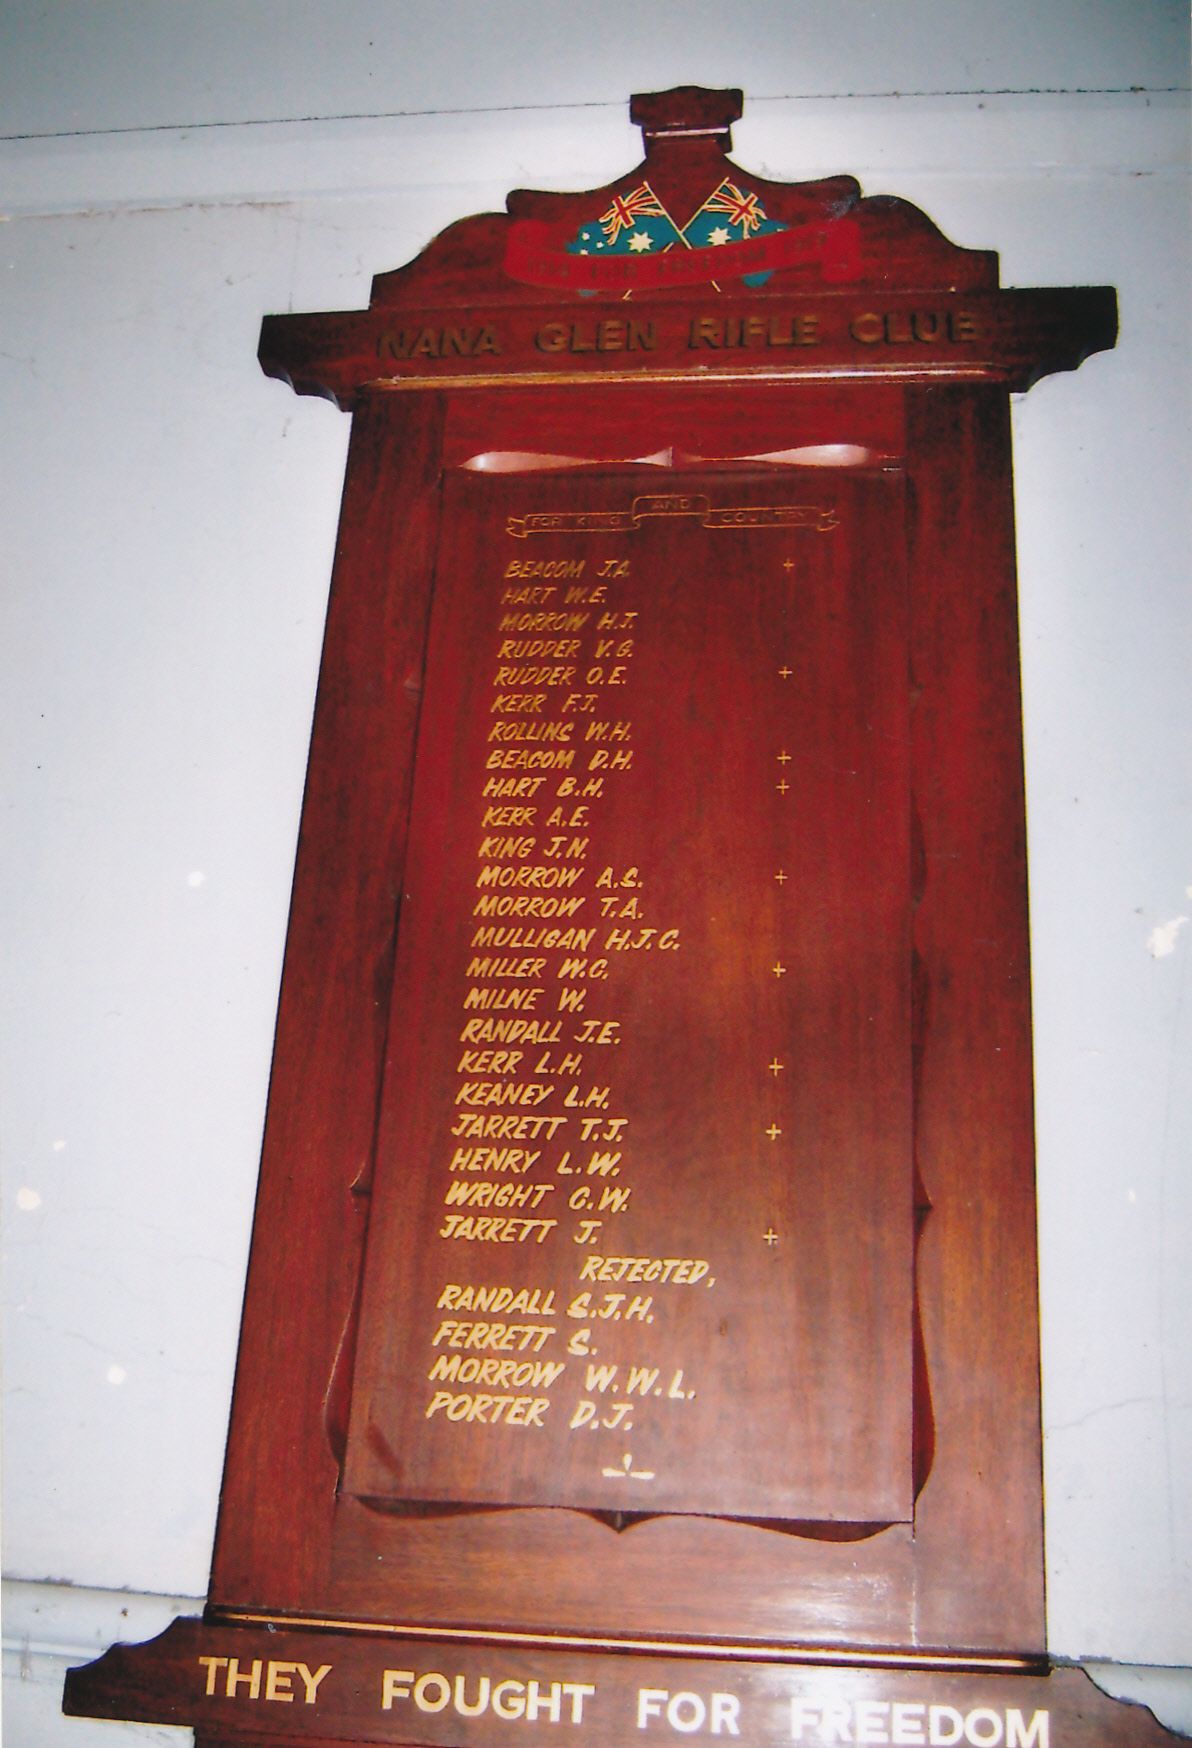 FOR FREEDOM
NANA GLEN RIFLE CLUB
FOR KING AND COUNTRY
BEACOM J.A. +
HART W.E.
MORROW H.J.
RUDDER V.G.
RUDDER O.E. +
KERR F.J.
ROLLINS W.H.
BEACOM D.H. +
HART B.H. +
KERR A.E.
KING J.N.
MORROW A.S. +
MORROW T.A.
MULLIGAN H.J.C.
MILLER W.C. +
MILNE W.
RANDALL J.E.
KERR L.H. +
KEANEY L.H.
JARRETT T.J. +
HENRY L.W.
WRIGHT C.W.
JARRETT J. +
REJECTED,
RANDALL S.J.H.
FERRETT S.
MORROW W.W.L.
PORTER D.J.
THEY FOUGHT FOR FREEDOM